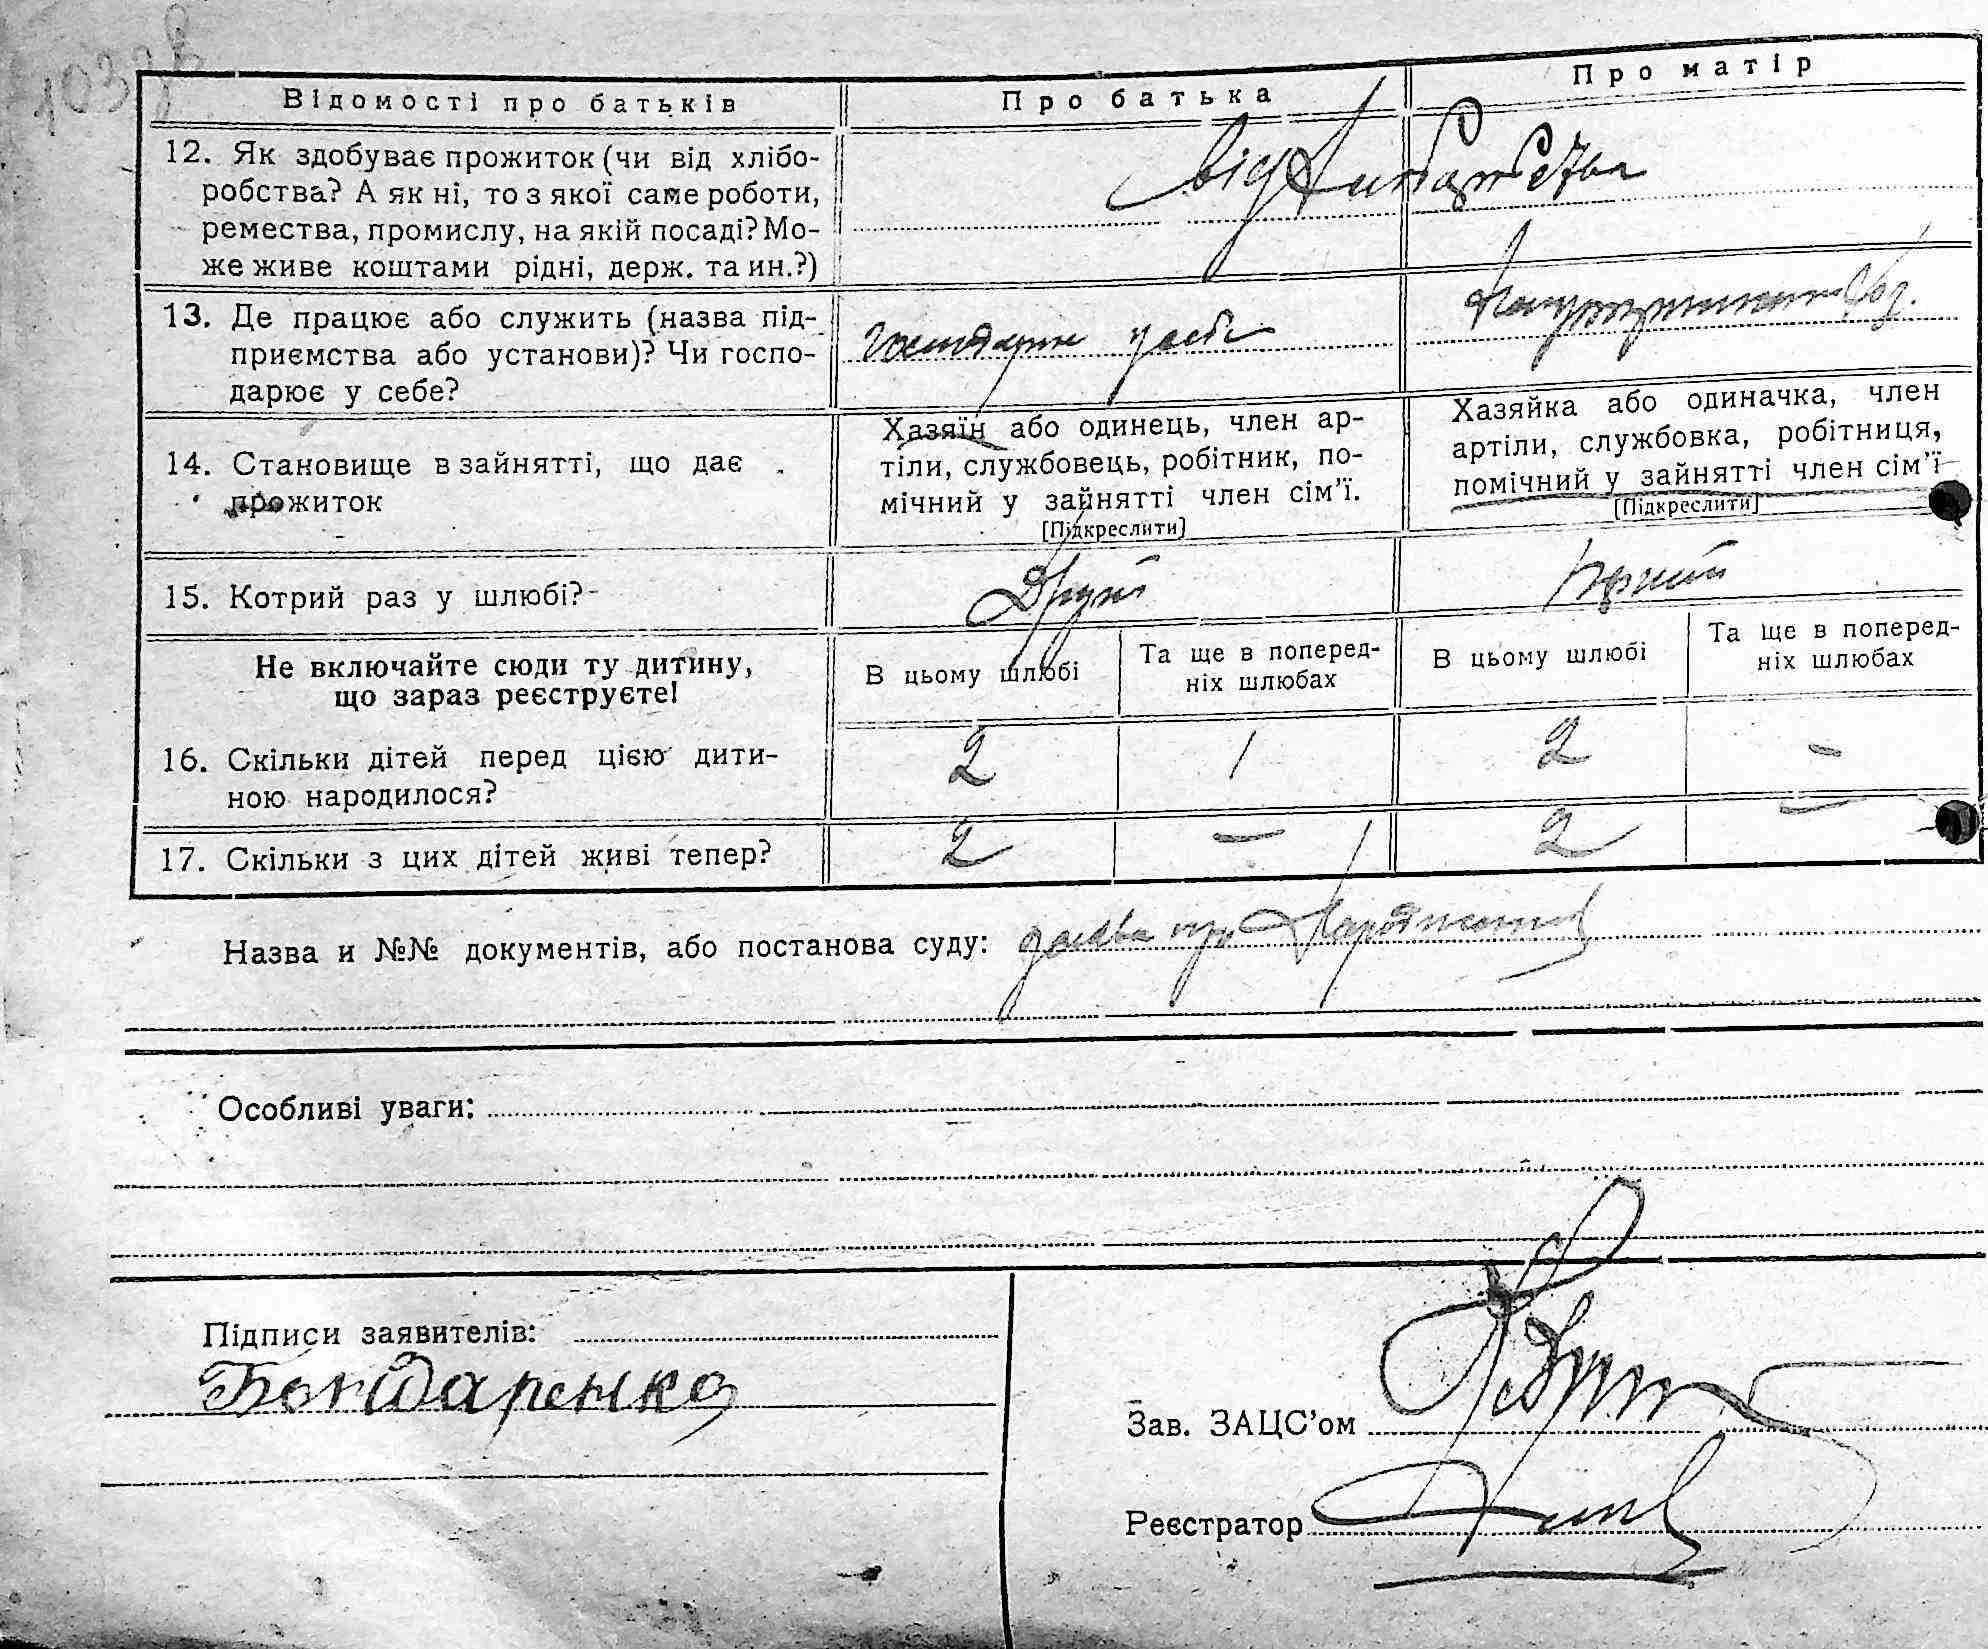 103зв
Відомості про батьків
Про батька
Про матір
12. Як здобуває прожиток (чи від хлібо-
робства? А як ні, то з якої саме роботи,
ремества, промислу, на якій посаді? Мо-
же живе коштами рідні, держ. та ин.?)
від хліборобства
13. Де працює або служить (назва під-
приємства або установи)? Чи госпо-
дарює у себе?
господарює у себе
14. Становище в зайнятті, що дає
прожиток
Хазяїн або одинець, член ар-
тіли, службовець, робітник, по-
мічний у зайнятті член сім'ї.
[Підкреслити]
Хазяйка або одиначка, член
артіли, службовка, робітниця,
помічний у зайнятті член сім'ї
[Підкреслити]
15. Котрий раз у шлюбі?
Другий
Перший
Не включайте сюди ту дитину,
що зараз реєструєте!
В цьому шлюбі
Та ще в поперед-
ніх шлюбах
В цьому шлюбі
Та ще в поперед-
ніх шлюбах
16. Скільки дітей перед цією дити-
ною народилося?
2
1
2
-
17. Скільки з цих дітей живі тепер?
2
-
2
-
Назва и №№ документів, або постанова суду: заява про
Особливі уваги:
Підписи заявителів:
Бондаренко
Зав. ЗАЦС'ом
Реєстратор